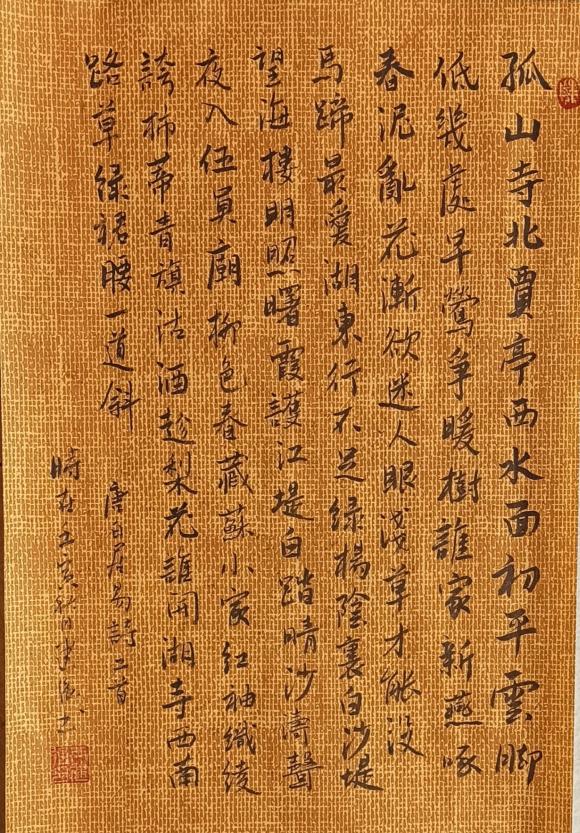 孤山寺北賈亭西水面初平雲脚
低幾處早鶯爭暖樹誰家新燕啄
春泥亂花漸欲迷人眼淺草才能沒
馬蹄最愛湖東行不足綠楊陰裏白沙堤
望海樓明照曙霞護江堤白踏晴沙濤聲
夜入伍員廟柳色春藏蘇小家紅袖織綾
誇柿蒂青旗沽酒趁梨花誰開湖寺西南
路草綠裙腰一道斜
唐白居易詩二首
時在壬寅秋月